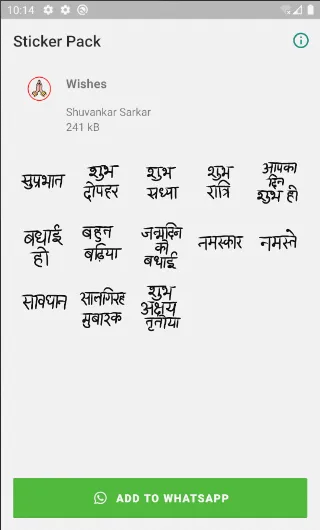 10:14
Sticker Pack
Wishes
Shuvankar Sarkar
241 kB
सुप्रभात
शुभ
दोपहर
शुभ
सन्ध्या
शुभ
रात्रि
आपका
दिन
शुभ हो
बधाई
हो
बहुत
बढ़िया
जन्मदिन
की
बधाई
नमस्कार
नमस्ते
सावधान
सालगिरह
मुबारक
शुभ
अक्षय
तृतीया
ADD TO WHATSAPP